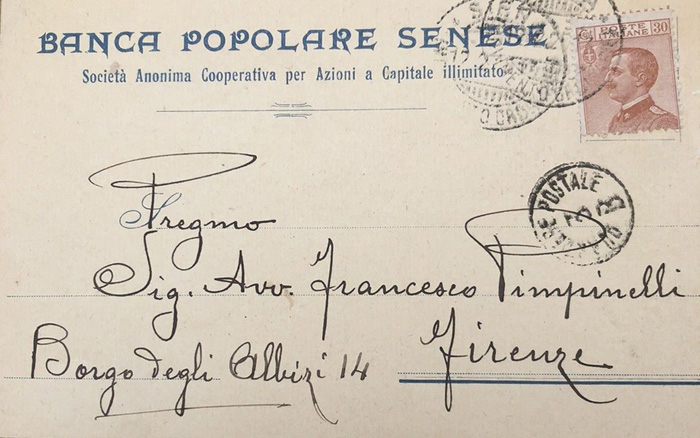 BANCA POPOLARE SENESE
Società Anonima Cooperativa per Azioni a Capitale illimitato
POSTE ITALIANE 30
POSTALE
Pregmo
Sig. Avv. Francesco Pimpinelli
Borgo degli Albizi 14
Firenze